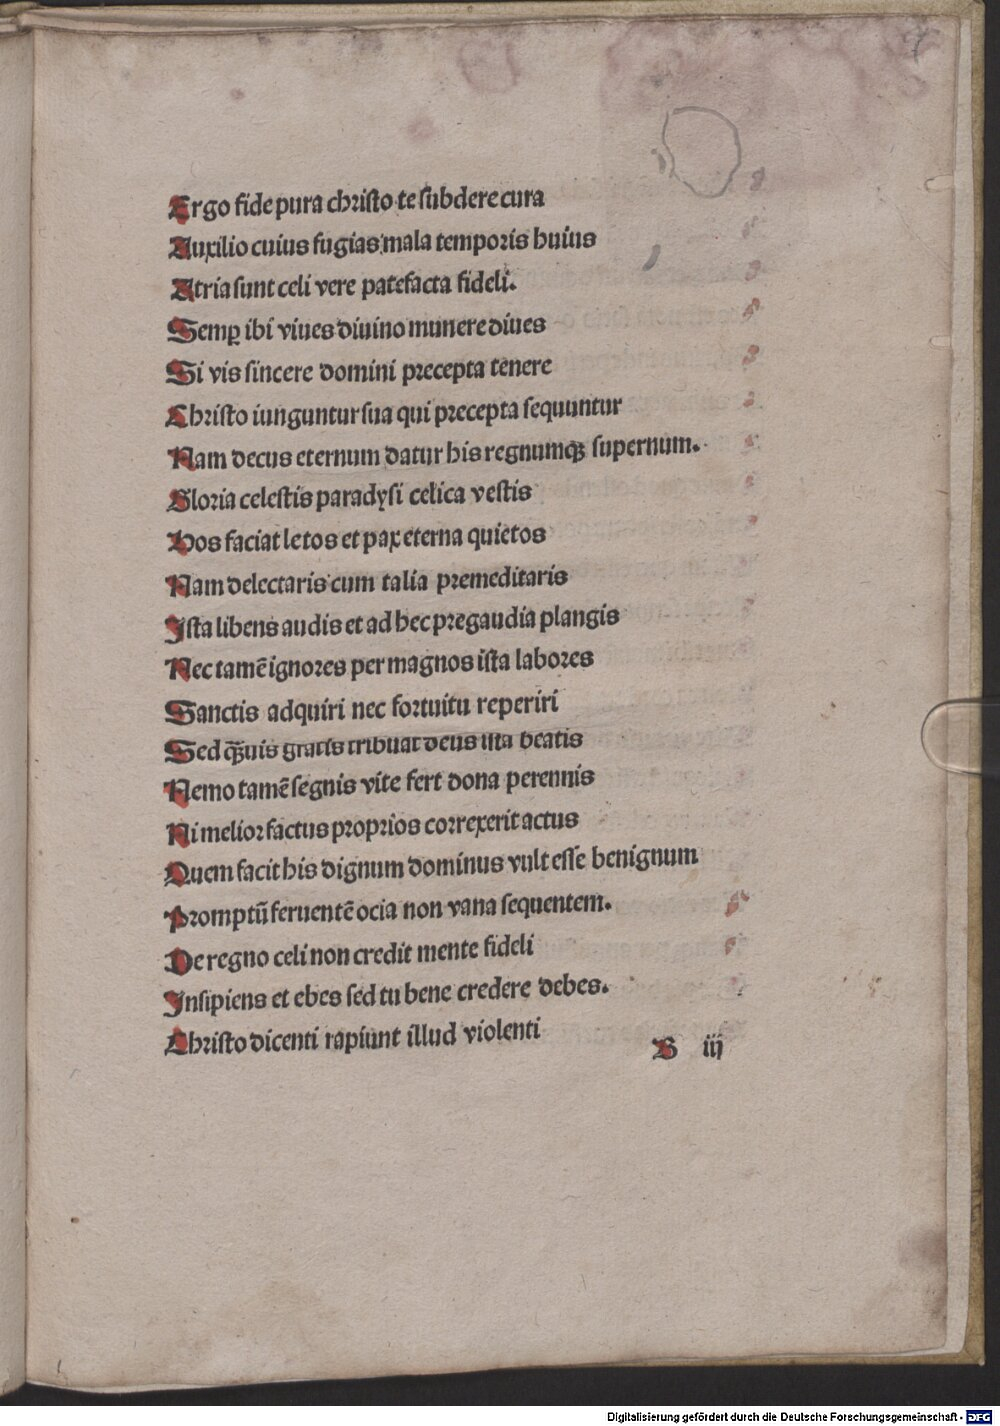 Ergo fide pura christo te subdere cura
Auxilio cuius fugias mala temporis huius
Atria sunt celi vere patefacta fideli.
Semꝑ ibi viues diuino munere diues
Si vis sincere domini precepta tenere
Christo iunguntur sua qui precepta sequuntur
Nam decus eternum datur his regnumqꝫ supernum.
Gloria celestis paradysi celica vestis
Hos faciat letos et pax eterna quietos
Nam delectaris cum talia premeditaris
Ista libens audis et ad hec pre gaudia plangis
Nec tamē ignores per magnos ista labores
Sanctis adquiri nec fortuitu reperiri
Sed q̄uis gratis tribuat deus ista beatis
Nemo tamē segnis vite fert dona perennis
Ni melior factus proprios correxerit actus
Quem facit his dignum dominus vult esse benignum
Promptū feruentē ocia non vana sequentem.
De regno celi non credit mente fideli
Insipiens et ebes sed tu bene credere debes.
Christo dicenti rapiunt illud violenti
B iij
Digitalisierung gefördert durch die Deutsche Forschungsgemeinschaft - DFG